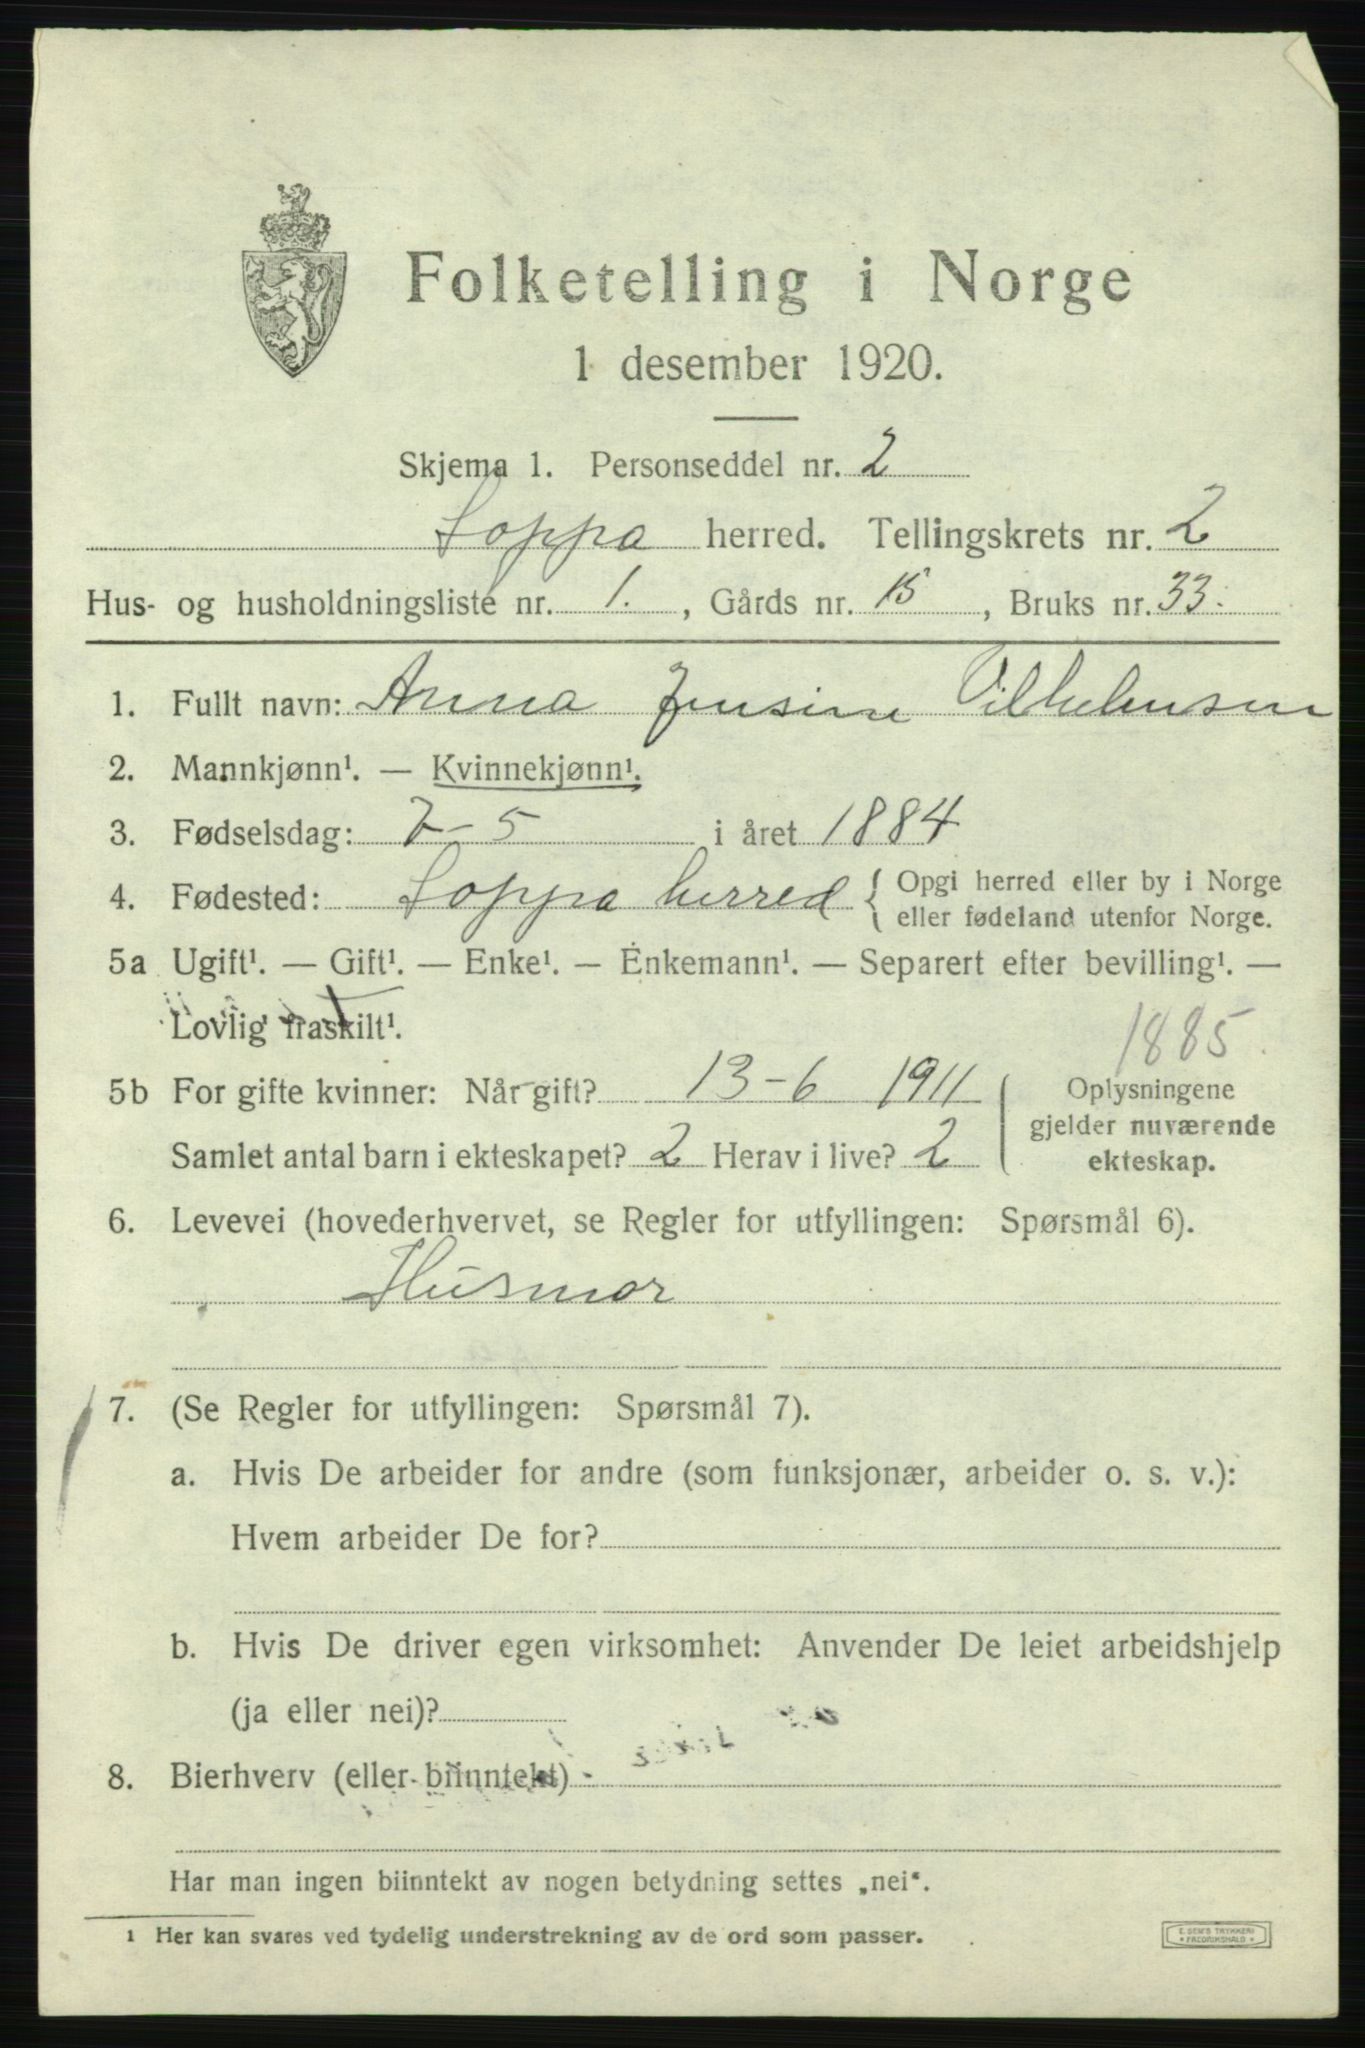 Folketelling i Norge
1 desember 1920.
Skjema 1. Personseddel nr. 2
Loppa herred. Tellingskrets nr. 2
Hus- og husholdningsliste nr. 1. , Gårds nr. 15 , Bruks nr. 33.
1. Fullt navn: Anna Jensine Vilhelmsen
2. Mannkjønn¹. — Kvinnekjønn¹.
3. Fødselsdag: 7-5 i året 1884
4. Fødested: Loppa herred { Opgi herred eller by i Norge
eller fødeland utenfor Norge.
5a Ugift¹. — Gift¹. — Enke¹. — Enkemann¹. — Separert efter bevilling¹. —
Lovlig fraskilt¹.
1885.
5b For gifte kvinner: Når gift? 13-6 1911
Samlet antal barn i ekteskapet? 2 Herav i live? 2
Oplysningene
gjelder nuværende
ekteskap.
6. Levevei (hovederhvervet, se Regler for utfyllingen: Spørsmål 6).
Husmor
7. (Se Regler for utfyllingen: Spørsmål 7).
a. Hvis De arbeider for andre (som funksjonær, arbeider o. s. v.):
Hvem arbeider De for?
b. Hvis De driver egen virksomhet: Anvender De leiet arbeidshjelp
(ja eller nei)?
8. Bierhverv (eller biinntekt)
Har man ingen biinntekt av nogen betydning settes „nei“.
1 Her kan svares ved tydelig understrekning av de ord som passer.
E. SEM'S TRYKKERI
FREDRIKSHALD